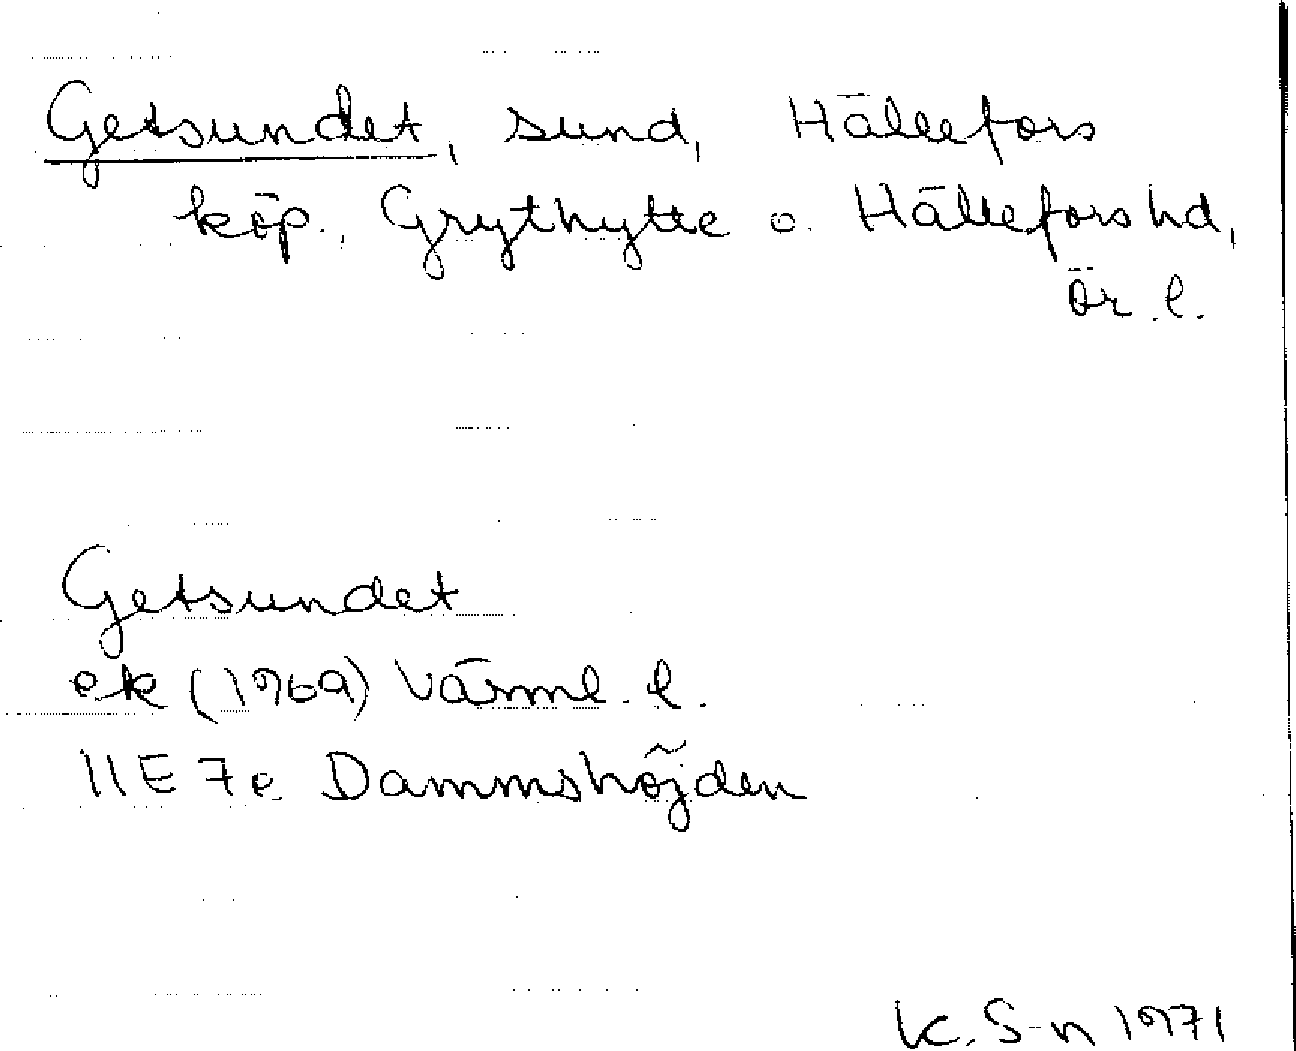 Getsundet, sund, Hällefors
köp., Grythytte o. Hällefors hd,
Ör. l.
Getsundet
ek (1969) Värml. l.
11E 7e Dammshöjden
K. S-n 1971